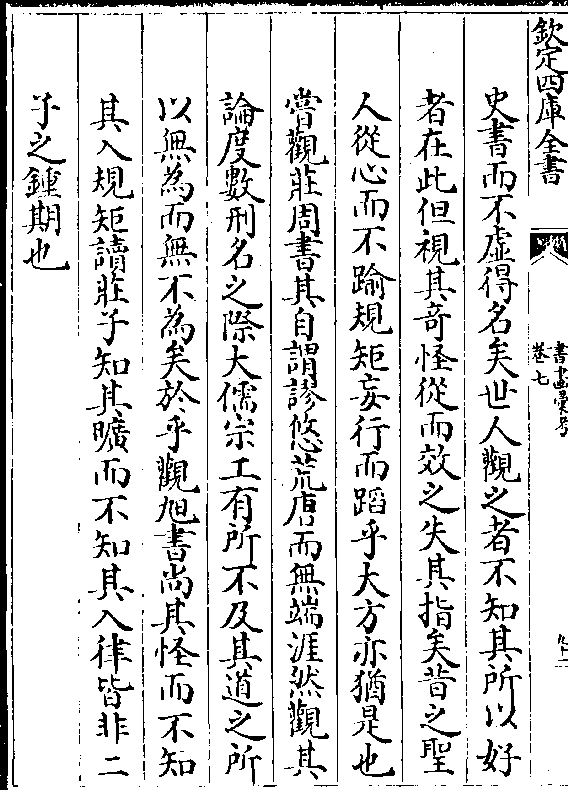 欽定四庫全書
書畫彙考
卷七
史書而不虛得名矣世人觀之者不知其所以好
者在此但視其奇怪從而效之失其指矣昔之聖
人從心而不踰規矩妄行而蹈乎大方亦猶是也
嘗觀莊周書其自謂謬悠荒唐而無端涯然觀其
論度數刑名之際大儒宗工有所不及其道之所
以無為而無不為矣於乎觀旭書尚其怪而不知
其入規矩讀莊子知其曠而不知其入律皆非二
子之鍾期也